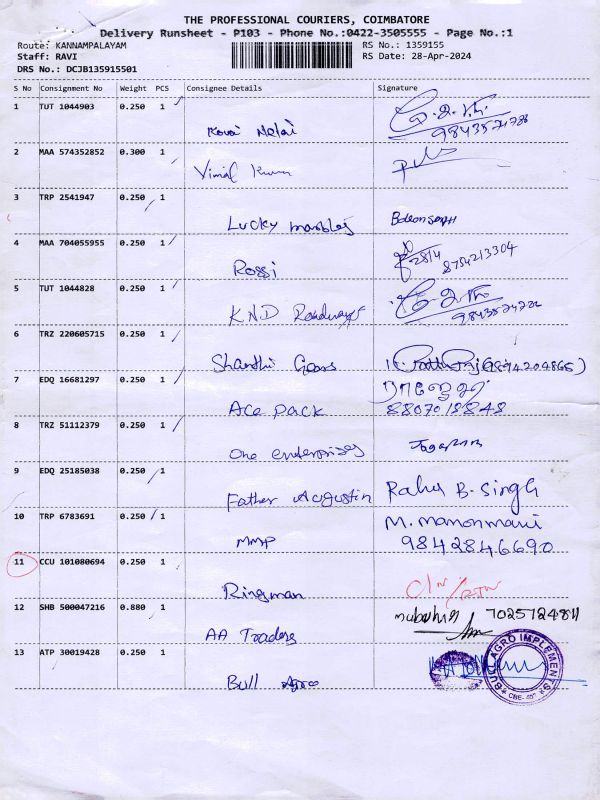 THE PROFESSIONAL COURIERS, COIMBATORE
Delivery Runsheet - P103 - Phone No.:0422-3505555 - Page No.:1
Route: KANNAMPALAYAM
Staff: RAVI
DRS No.: DCJB135915501
RS No.: 1359155
RS Date: 28-Apr-2024
S No Consignment No Weight PCS Consignee Details Signature
1 TUT 1044903 0.250 1
Kovai Nelai
2 MAA 574352852 0.300 1
Vimal Kumar
3 TRP 2541947 0.250 1
Lucky marbles
4 MAA 704055955 0.250 1
Rossi 28/4 8754213304
5 TUT 1044828 0.250 1
KND Roadways
6 TRZ 220605715 0.250 1
Shanthi Gears
7 EDQ 16681297 0.250 1
Ace pack 8807018848
8 TRZ 51112379 0.250 1
One enterprises
9 EDQ 25185038 0.250 1
Father Augustin Rahu B. Singh
10 TRP 6783691 0.250 1
M. Manonmani
MMP 9842846690
11 CCU 101080694 0.250 1
Ringman
12 SHB 500047216 0.880 1
7025724811
AA Traders
13 ATP 30019428 0.250 1
Bull Agro
BULL AGRO IMPLEMENTS